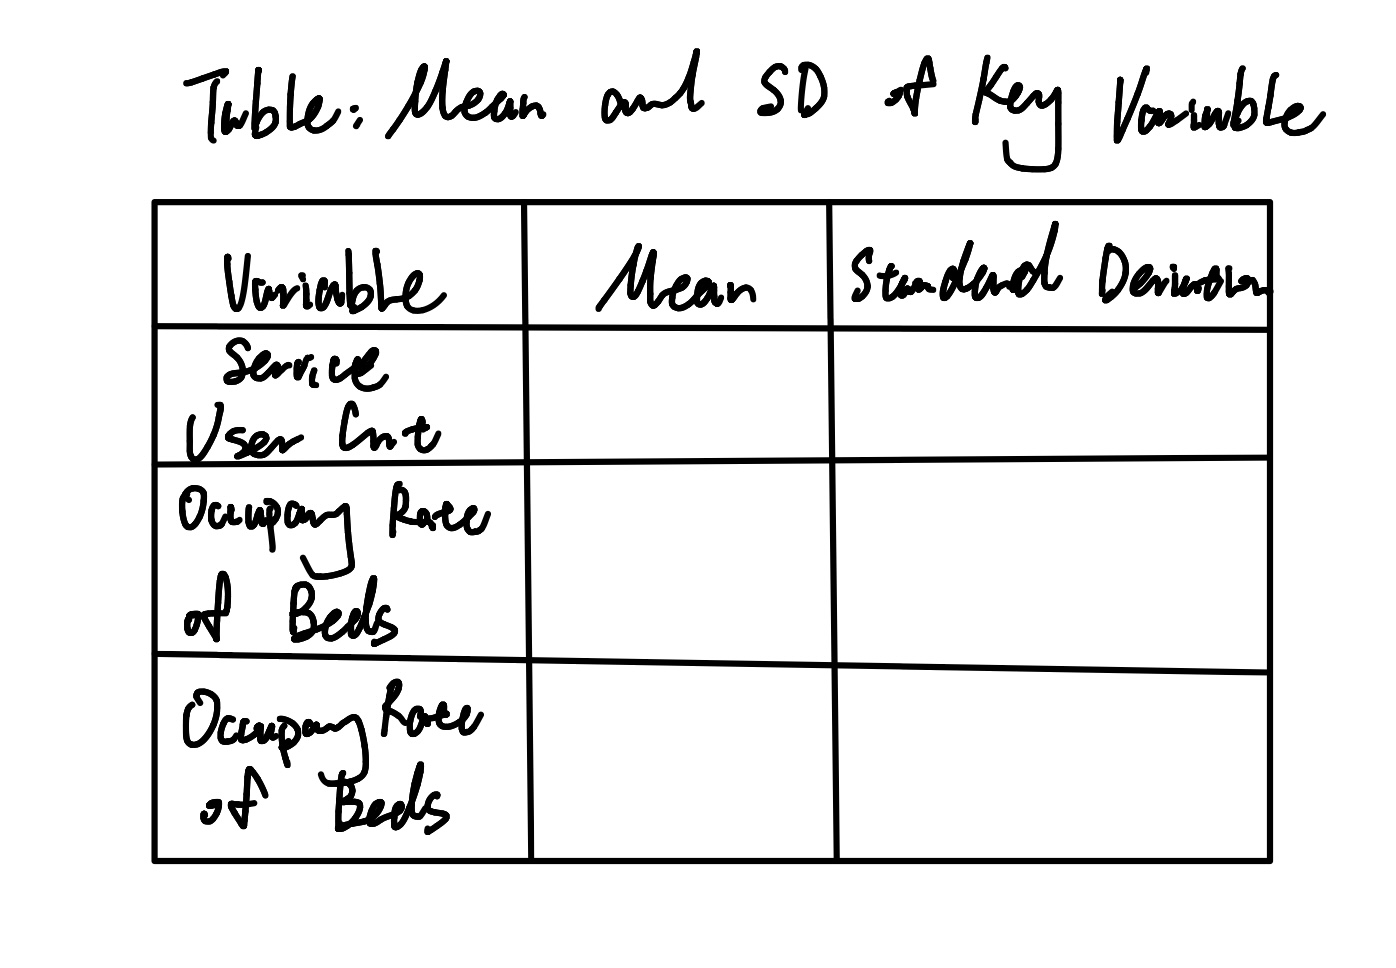 Table: Mean and SD of Key Variable
Variable Mean Standard Deviation
Service
User Cnt
Occupany Rate
of Beds
Occupany Rate
of Beds